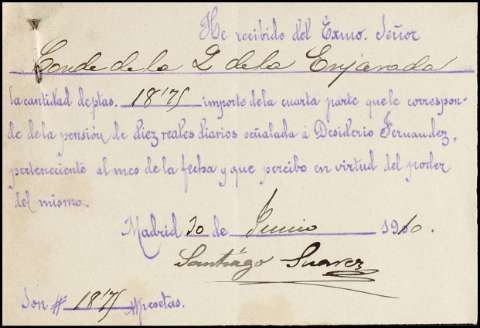 He recibido del Exmo. Señor
Conde de la Q de la Enjarada
la cantidad de ptas. 18'75 importe de la cuarta parte que le correspon-
de de la pensión de diez reales diarios señalada á Desiderio Fernandez,
perteneciente al mes de la fecha y que percibo en virtud del poder
del mismo.
Madrid 30 de Junio 1910.
Santiago Suarez
Son # 18'75 # pesetas.